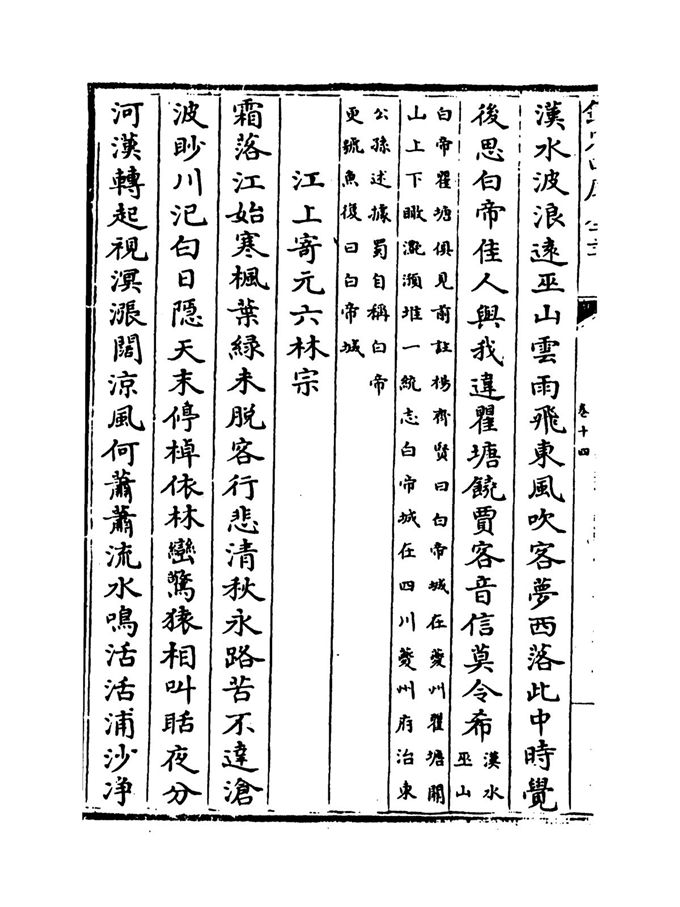 卷十四
漢水波浪遠巫山雲雨飛東風吹客夢西落此中時覺
後思白帝佳人與我違瞿塘饒賈客音信莫令希漢水
巫山
白帝瞿塘俱見前註楊齊賢曰白帝城在夔州瞿塘關
山上下瞰灔澦堆一統志白帝城在四川夔州府治東
公孫述據蜀自稱白帝
更號魚復曰白帝城
江上寄元六林宗
霜落江始寒楓葉緑未脱客行悲清秋永路苦不達滄
波眇川汜白日隱天末停棹依林巒驚猿相叫聒夜分
河漢轉起視溟漲闊涼風何蕭蕭流水鳴活活浦沙净